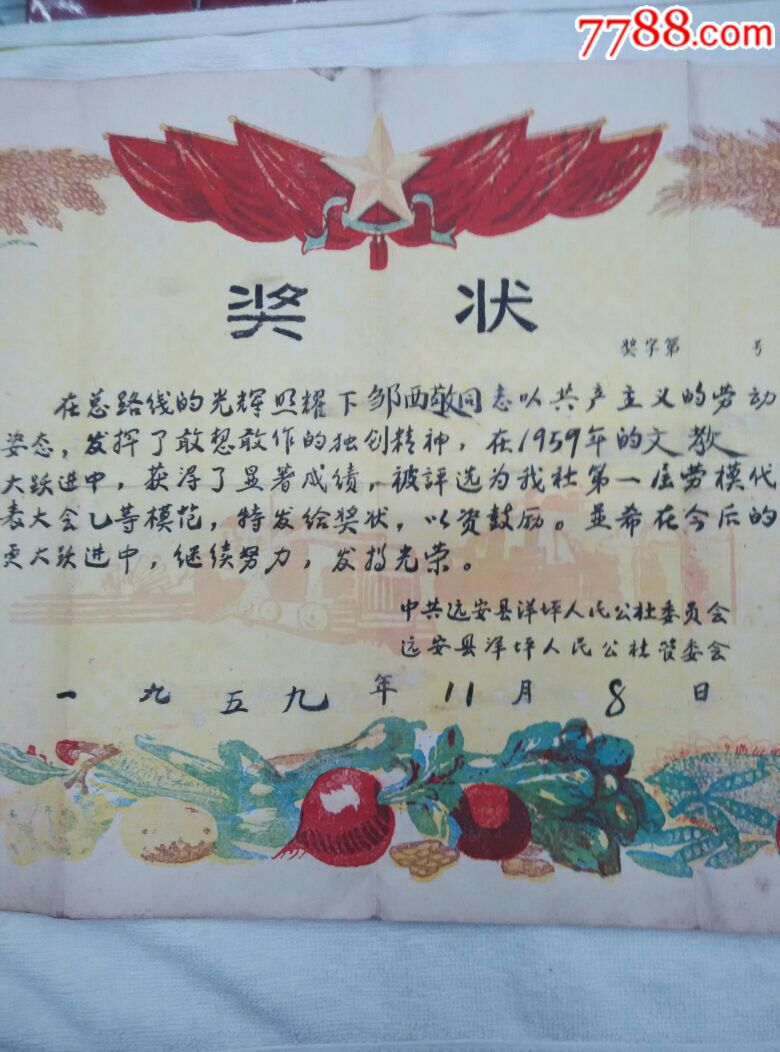 7788.com
奖 状
奖字第 号
在总路线的光辉照耀下邹西敬同志以共产主义的劳动
姿态,发挥了敢想敢作的独创精神,在1959年的文教
大跃进中,获得了显著成绩,被評选为我社第一届劳模代
表大会乙等模范,特发给奖状,以资鼓励。並希在今后的
更大跃进中,继续努力,发扬光荣。
中共远安县洋坪人民公社委员会
远安县洋坪人民公社管委会
一九五九年11月8日